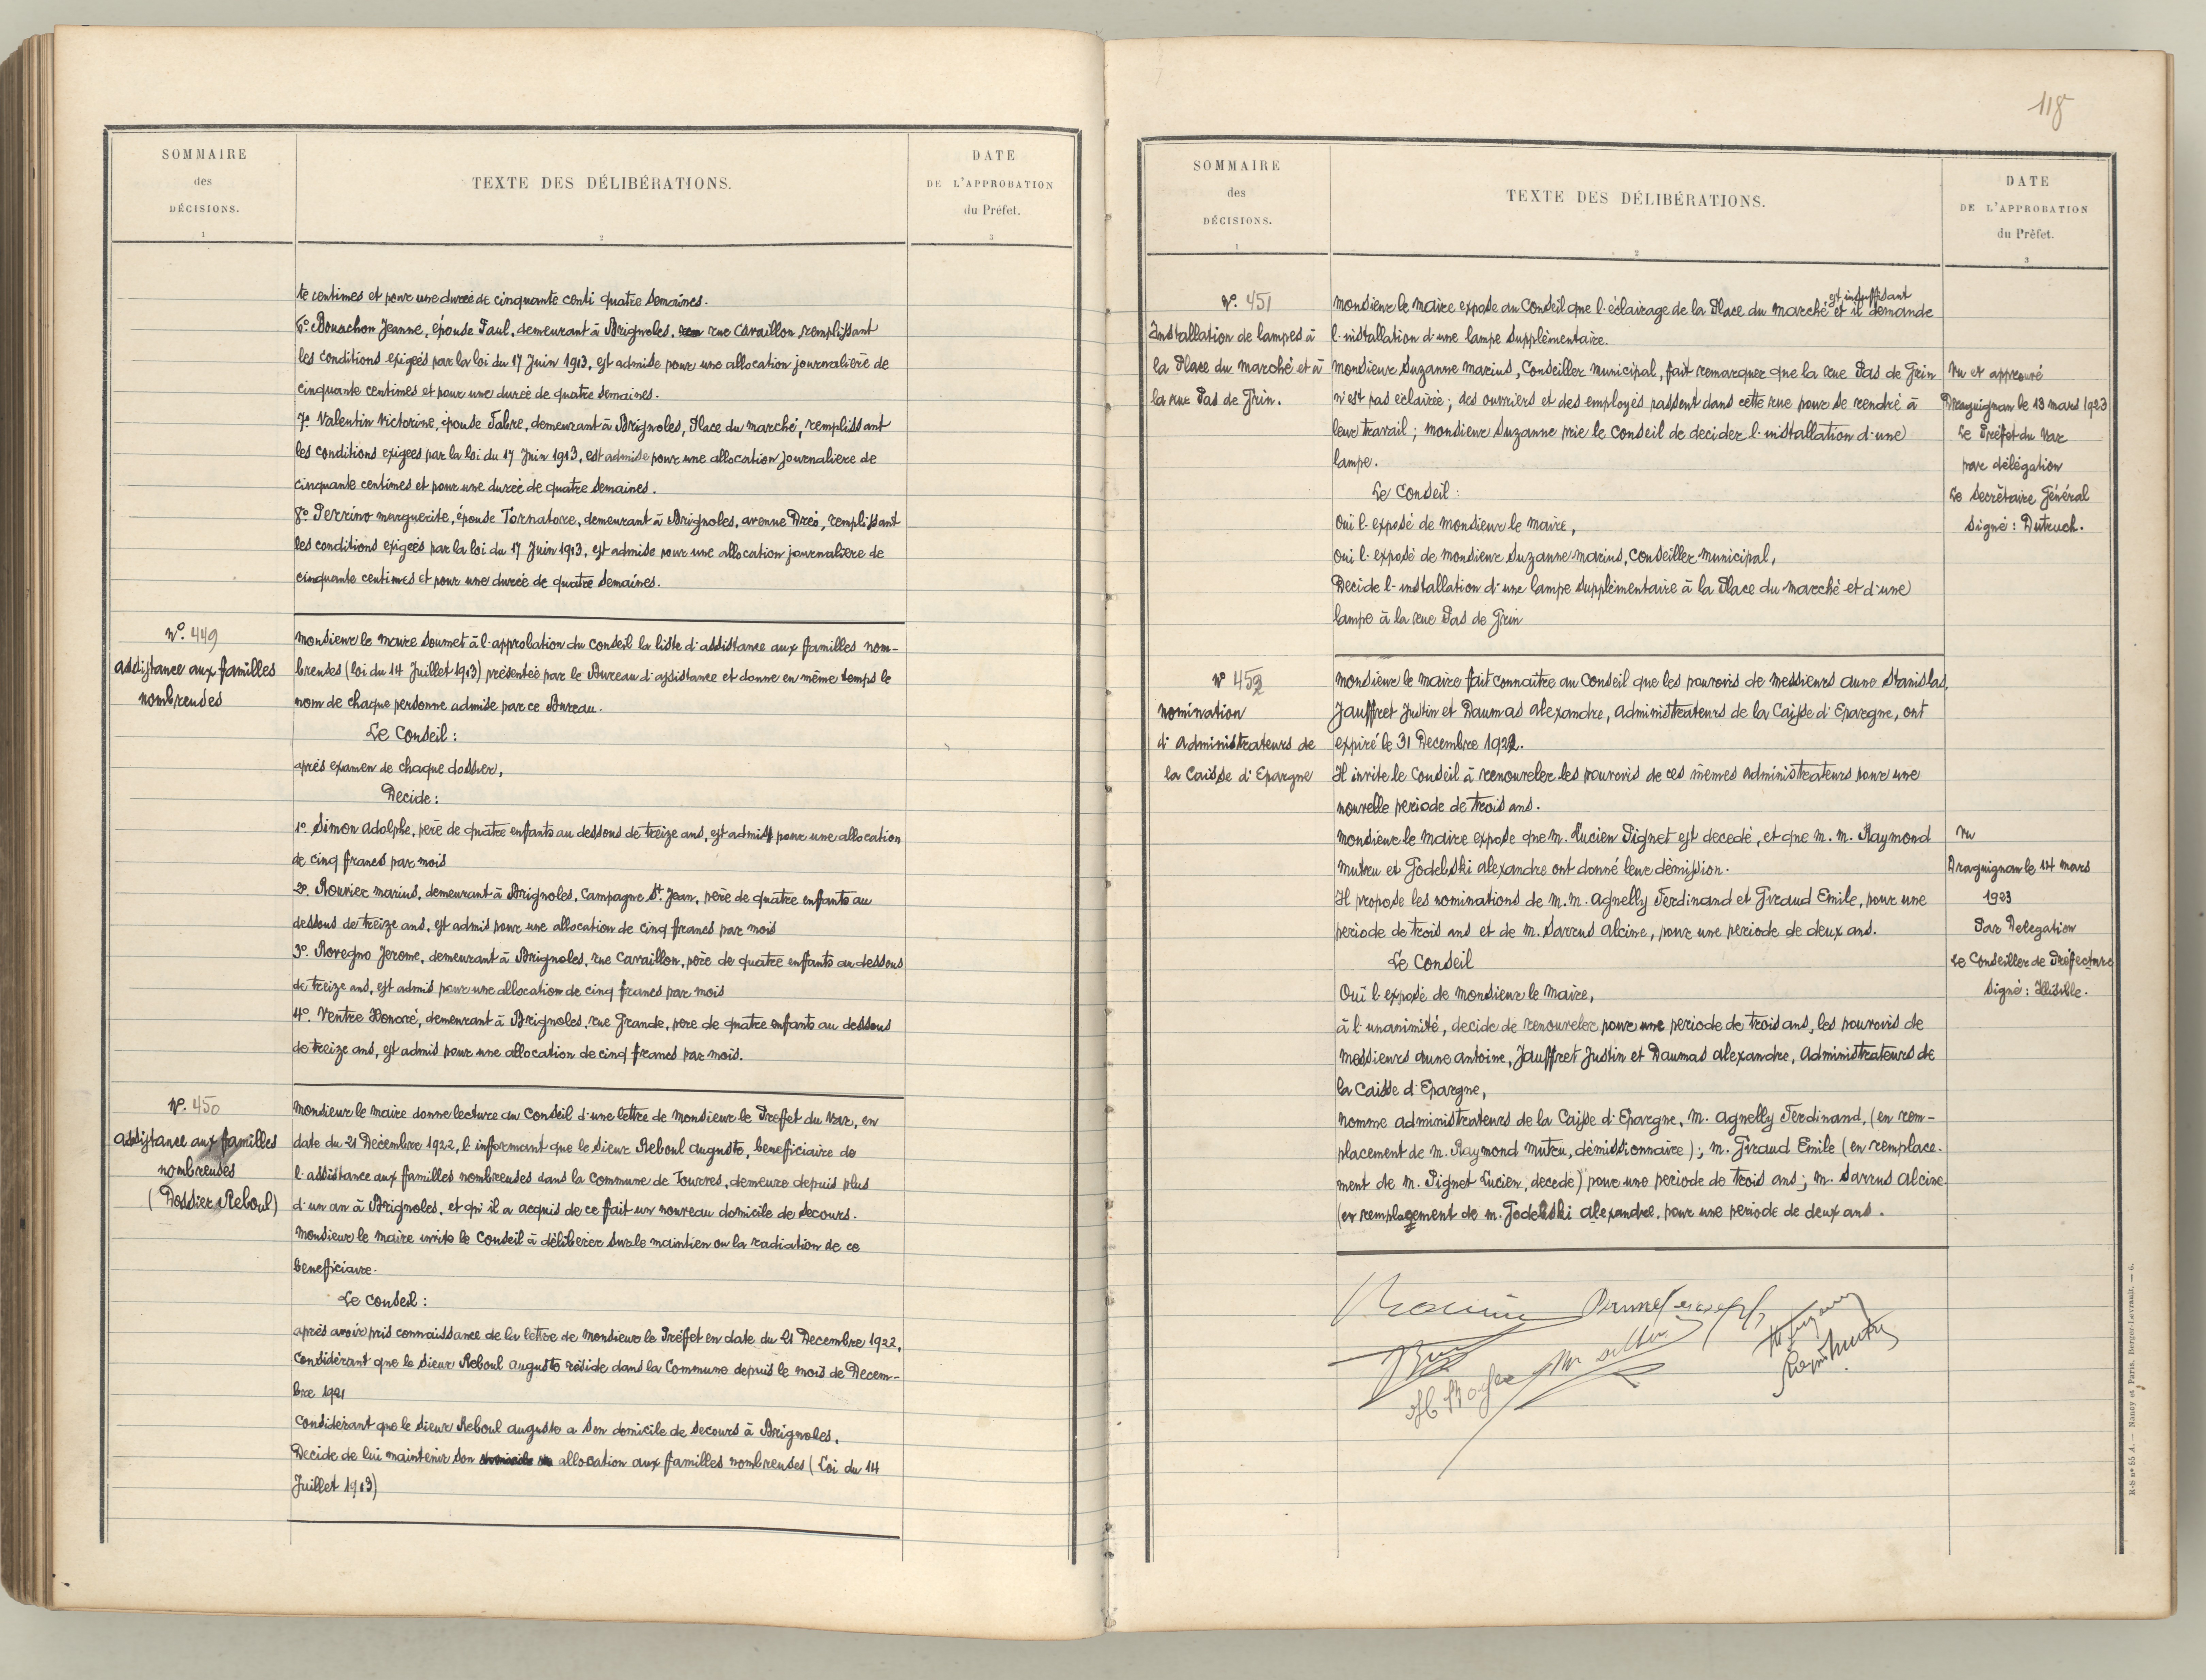 SOMMAIRE
des
DÉCISIONS.
1
TEXTE DES DÉLIBÉRATIONS.
2
DATE
DE L'APPROBATION
du Préfet.
3
te centimes et pour une durée de cinquante centi quatre semaines.
6º Bouachon Jeanne, épouse Paul, demeurant à Brignoles, rue Cavaillon remplissant
les conditions exigées par la loi du 17 Juin 1913, est admise pour une allocation journalière de
cinquante centimes et pour une durée de quatre semaines.
7º Valentin Victorine, épouse Fabre, demeurant à Brignoles, Place du marché, remplissant
les conditions exigées par la loi du 17 Juin 1913, est admise pour une allocation journaliere de
cinquante centimes et pour une durée de quatre semaines.
8º Perrino marguerite, épouse Tornatore, demeurant à Brignoles, avenue Dréo, remplissant
les conditions exigées par la loi du 17 Juin 1913, est admise pour une allocation journalière de
cinquante centimes et pour une durée de quatre semaines.
Nº. 449
assistance aux familles
nombreuses
Monsieur le maire soumet à l'approbation du conseil la liste d'assistance aux familles nom-
breuses (loi du 14 Juillet 1913) présentée par le Bureau d'assistance et donne en même temps le
nom de chaque personne admise par ce Bureau.
Le Conseil :
après examen de chaque dossier,
Decide :
1º Simon Adolphe, père de quatre enfants au dessous de treize ans, est admis pour une allocation
de cinq francs par mois
2º. Rouvier marius, demeurant à Brignoles, Campagne St. Jean, père de quatre enfants au
dessous de treize ans, est admis pour une allocation de cinq francs par mois
3º. Rovegno Jerome, demeurant à Brignoles, rue Cavaillon, père de quatre enfants au dessous
de treize ans, est admis pour une allocation de cinq francs par mois
4º. Ventre Honoré, demeurant à Brignoles, rue Grande, pere de quatre enfants au dessous
de treize ans, est admis pour une allocation de cinq francs par mois.
Nº. 450
assistance aux familles
nombreuses
(Dossier Reboul)
Monsieur le maire donne lecture au Conseil d'une lettre de Monsieur le Preffet du Var, en
date du 21 Decembre 1922, l'informant que le sieur Reboul Auguste, beneficiaire de
l'assistance aux familles nombreuses dans la commune de Tourves, demeure depuis plus
d'un an à Brignoles, et qu'il a acquis de ce fait un nouveau domicile de secours.
Monsieur le maire invite le Conseil à déliberer sur le maintien ou la radiation de ce
beneficiaire.
Le conseil :
après avoir pris connaissance de la lettre de Monsieur le Préffet en date du 21 Decembre 1922,
Considérant que le sieur Reboul Auguste réside dans la Commune depuis le mois de Decem-
bre 1921
Considérant que le sieur Reboul auguste a son domicile de secours à Brignoles,
Decide de lui maintenir son allocation aux familles nombreuses (Loi du 14
Juillet 1913)
118
SOMMAIRE
des
DÉCISIONS.
1
TEXTE DES DÉLIBÉRATIONS.
2
DATE
DE L'APPROBATION
du Préfet.
3
Nº. 451
Installation de lampes à
la Place du marché et à
la rue Pas de Grin.
est insuffisant
Monsieur le maire expose au Conseil que l'éclairage de la Place du marché et il demande
l'installation d'une lampe supplémentaire.
Monsieur Suzanne Marius, Conseiller municipal, fait remarquer que la rue Pas de Grin
n'est pas eclairée ; des ouvriers et des employés passent dans cette rue pour se rendre à
leur travail ; Monsieur Suzanne prie le Conseil de decider l'installation d'une
lampe.
Le Conseil :
Oui l'exposé de Monsieur le Maire,
Oui l'exposé de Monsieur Suzanne Marius, Conseiller Municipal,
Decide l'installation d'une lampe supplémentaire à la Place du marché et d'une
lampe à la rue Pas de Grin
Vu et approuvé
Draguignan le 13 mars 1923
Le Préfet du Var
par délégation
Le Secrétaire Général
Signé : Dutruch.
Nº 452
Nomination
d'Administrateurs de
la Caisse d'Epargne
Monsieur le Maire fait connaitre au Conseil que les pouvoirs de Messieurs Aune Stanislas,
Jauffret Justin et Daumas Alexandre, Administrateurs de la Caisse d'Epargne, ont
expiré le 31 Decembre 1922.
Il invite le Conseil à renouveler les pouvoirs de ces mêmes administrateurs pour une
nouvelle periode de trois ans.
Monsieur le Maire expose que M. Lucien Pignet est decedé, et que M. M. Raymond
Mutru et Godelski Alexandre ont donné leur démission.
Il propose les nominations de M. M. Agnelly Ferdinand et Giraud Emile, pour une
periode de trois ans et de M. Sarrus Alcine, pour une periode de deux ans.
Le Conseil
Oui l'exposé de Monsieur le Maire,
à l'unanimité, decide de renouveler pour une periode de trois ans, les pouvoirs de
Messieurs Aune Antoine, Jauffret Justin et Daumas Alexandre, Administrateurs de
la Caisse d'Epargne,
Nomme administrateurs de la Caisse d'Epargne, M. Agnelly Ferdinand, (en rem-
placement de M. Raymond Mutru, démissionnaire) ; M. Giraud Emile (en remplace-
ment de M. Pignet Lucien, decedé) pour une periode de trois ans ; M. Sarrus Alcine
(en remplacement de M. Godelski Alexandre, pour une periode de deux ans.
Vu
Draguignan le 14 mars
1923
Par Delegation
Le Conseiller de Préfecture
Signé : Illisible.
R-S nº 65 A. — Nancy et Paris, Berger-Levrault. — 6.